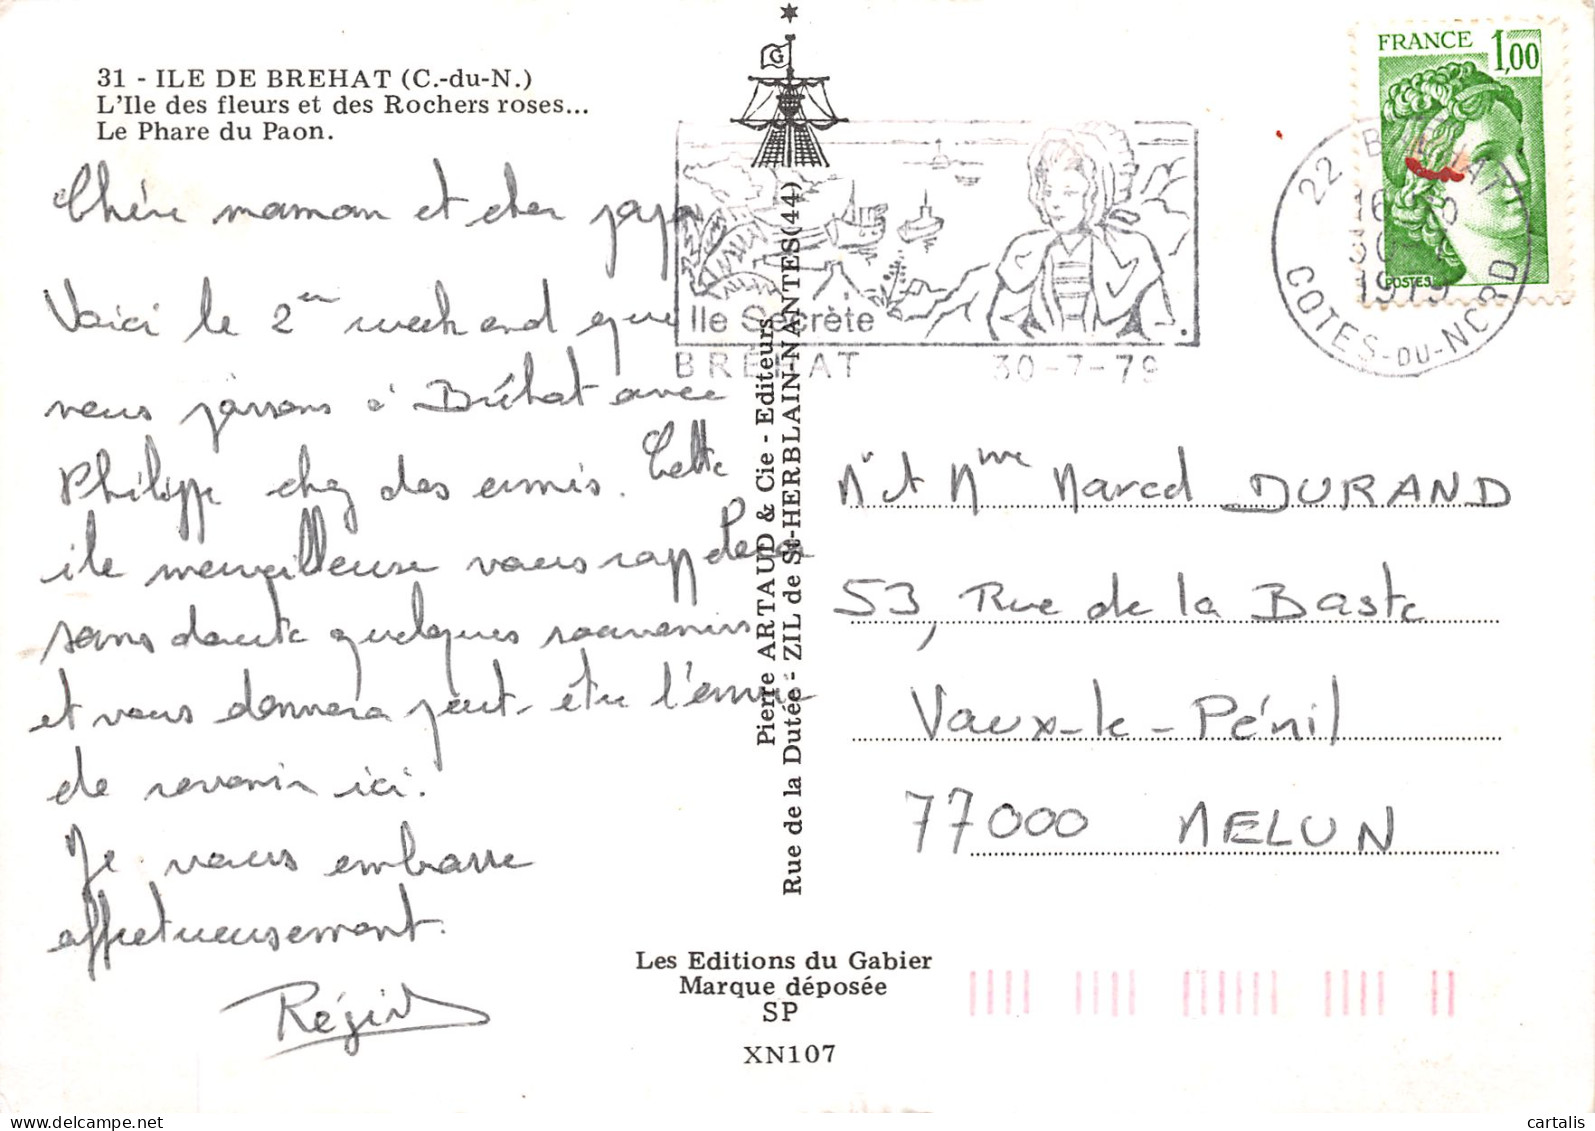 31 - ILE DE BREHAT (C.-du-N.)
L'Ile des fleurs et des Rochers roses...
Le Phare du Paon.
Chère maman et cher papa
Voici le 2en week end que
nous passons à Bréhat avec
Philippe chez des amis. Cette
ile merveilleuse vous rappelera
sans doute quelques souvenirs
et vous donnera peut-être l'envie
de revenir ici.
Je vous embrasse
affectueusement.
Régis
G
Pierre ARTAUD & Cie - Editeurs
Rue de la Dutée - ZIL de St-HERBLAIN-NANTES(44)
Ile Secrète
BREHAT 30-7-79
FRANCE 1,00
POSTES
22 BREHAT
1979
COTES-DU-NORD
Mr et Mme Marcel DURAND
53, Rue de la Baste
Vaux-le-Pénil
77000 MELUN
Les Editions du Gabier
Marque déposée
SP
XN107
cartalis